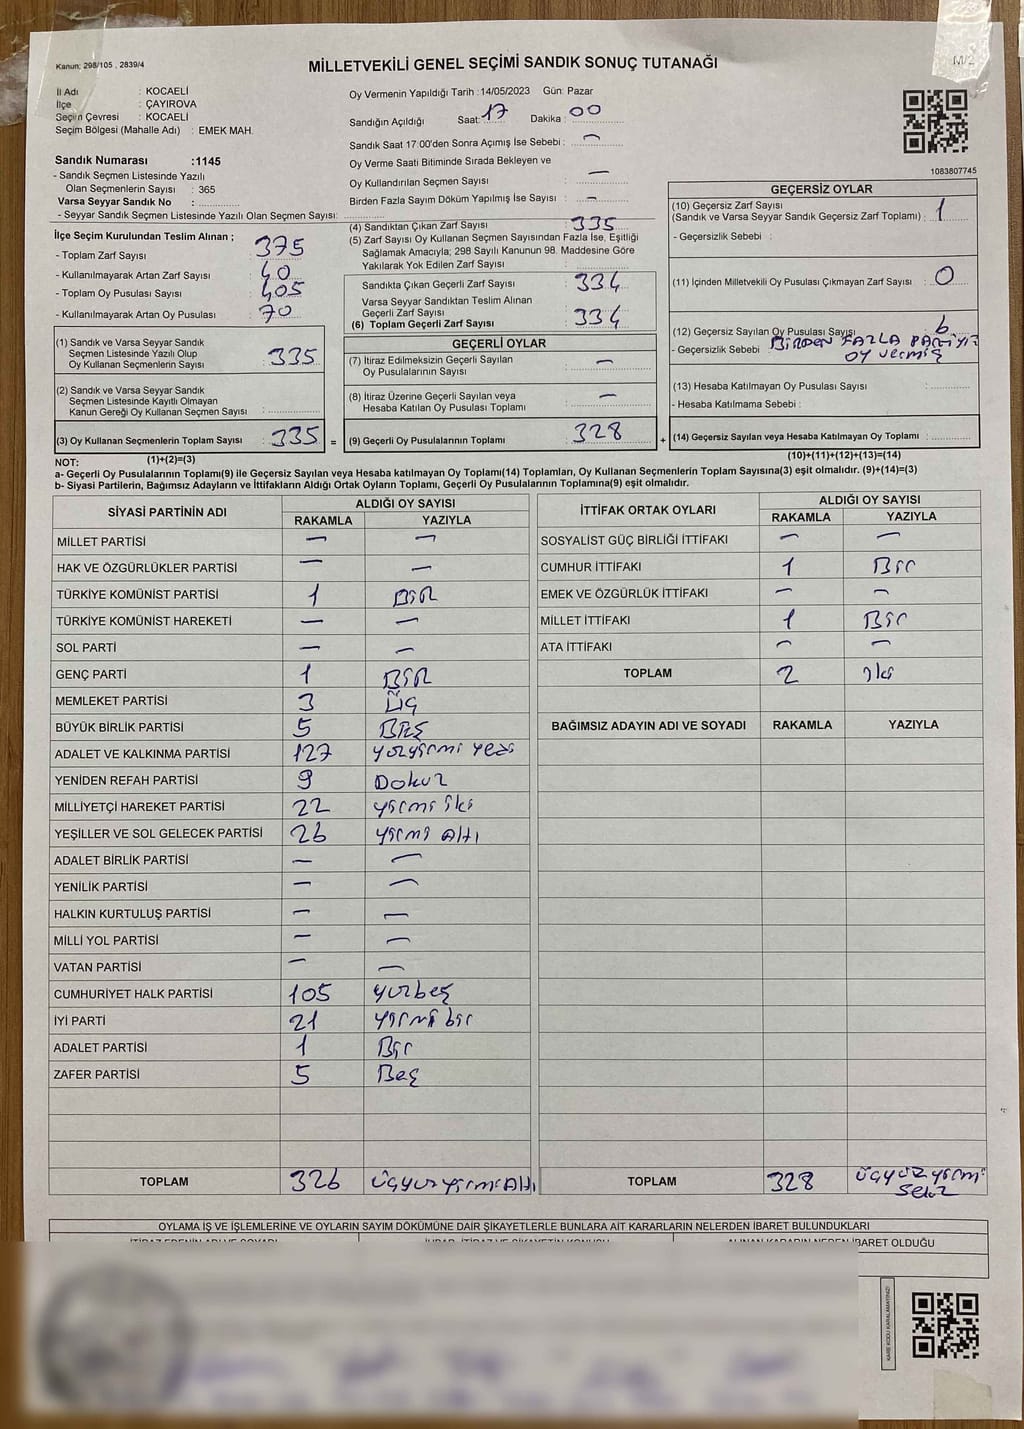 Kanun: 298/105 , 2839/4
MİLLETVEKİLİ GENEL SEÇİMİ SANDIK SONUÇ TUTANAĞI
M/2
İl Adı : KOCAELİ
İlçe : ÇAYIROVA
Seçim Çevresi : KOCAELİ
Seçim Bölgesi (Mahalle Adı) : EMEK MAH.
Sandık Numarası :1145
- Sandık Seçmen Listesinde Yazılı
Olan Seçmenlerin Sayısı : 365
Varsa Seyyar Sandık No :
- Seyyar Sandık Seçmen Listesinde Yazılı Olan Seçmen Sayısı:
Oy Vermenin Yapıldığı Tarih :14/05/2023 Gün: Pazar
Sandığın Açıldığı Saat: 17 Dakika : 00
Sandık Saat 17:00'den Sonra Açımış İse Sebebi : —
Oy Verme Saati Bitiminde Sırada Bekleyen ve
Oy Kullandırılan Seçmen Sayısı : —
Birden Fazla Sayım Döküm Yapılmış İse Sayısı : —
1083807745
İlçe Seçim Kurulundan Teslim Alınan ;
- Toplam Zarf Sayısı : 375
- Kullanılmayarak Artan Zarf Sayısı : 40
- Toplam Oy Pusulası Sayısı : 405
- Kullanılmayarak Artan Oy Pusulası : 70
(1) Sandık ve Varsa Seyyar Sandık
Seçmen Listesinde Yazılı Olup
Oy Kullanan Seçmenlerin Sayısı : 335
(2) Sandık ve Varsa Seyyar Sandık
Seçmen Listesinde Kayıtlı Olmayan
Kanun Gereği Oy Kullanan Seçmen Sayısı :
(3) Oy Kullanan Seçmenlerin Toplam Sayısı : 335 =
(1)+(2)=(3)
(4) Sandıktan Çıkan Zarf Sayısı : 335
(5) Zarf Sayısı Oy Kullanan Seçmen Sayısından Fazla İse, Eşitliği
Sağlamak Amacıyla; 298 Sayılı Kanunun 98. Maddesine Göre
Yakılarak Yok Edilen Zarf Sayısı :
Sandıkta Çıkan Geçerli Zarf Sayısı : 334
Varsa Seyyar Sandıktan Teslim Alınan
Geçerli Zarf Sayısı :
(6) Toplam Geçerli Zarf Sayısı : 334
GEÇERLİ OYLAR
(7) İtiraz Edilmeksizin Geçerli Sayılan
Oy Pusulalarının Sayısı : —
(8) İtiraz Üzerine Geçerli Sayılan veya
Hesaba Katılan Oy Pusulası Toplamı : —
(9) Geçerli Oy Pusulalarının Toplamı : 328 +
GEÇERSİZ OYLAR
(10) Geçersiz Zarf Sayısı
(Sandık ve Varsa Seyyar Sandık Geçersiz Zarf Toplamı) : 1
- Geçersizlik Sebebi :
(11) İçinden Milletvekili Oy Pusulası Çıkmayan Zarf Sayısı : 0
(12) Geçersiz Sayılan Oy Pusulası Sayısı : 6
- Geçersizlik Sebebi : BİRDEN FAZLA PARTİYE
OY Vermiş
(13) Hesaba Katılmayan Oy Pusulası Sayısı :
- Hesaba Katılmama Sebebi :
(14) Geçersiz Sayılan veya Hesaba Katılmayan Oy Toplamı :
(10)+(11)+(12)+(13)=(14)
NOT:
a- Geçerli Oy Pusulalarının Toplamı(9) ile Geçersiz Sayılan veya Hesaba katılmayan Oy Toplamı(14) Toplamları, Oy Kullanan Seçmenlerin Toplam Sayısına(3) eşit olmalıdır. (9)+(14)=(3)
b- Siyasi Partilerin, Bağımsız Adayların ve İttifakların Aldığı Ortak Oyların Toplamı, Geçerli Oy Pusulalarının Toplamına(9) eşit olmalıdır.
SİYASİ PARTİNİN ADI ALDIĞI OY SAYISI
RAKAMLA YAZIYLA
MİLLET PARTİSİ — —
HAK VE ÖZGÜRLÜKLER PARTİSİ — —
TÜRKİYE KOMÜNİST PARTİSİ 1 BİR
TÜRKİYE KOMÜNİST HAREKETİ — —
SOL PARTİ — —
GENÇ PARTİ 1 BİR
MEMLEKET PARTİSİ 3 Üç
BÜYÜK BİRLİK PARTİSİ 5 BEŞ
ADALET VE KALKINMA PARTİSİ 127 yüzyirmi yedi
YENİDEN REFAH PARTİSİ 9 Dokuz
MİLLİYETÇİ HAREKET PARTİSİ 22 yirmi iki
YEŞİLLER VE SOL GELECEK PARTİSİ 26 yirmi Altı
ADALET BİRLİK PARTİSİ — —
YENİLİK PARTİSİ — —
HALKIN KURTULUŞ PARTİSİ — —
MİLLİ YOL PARTİSİ — —
VATAN PARTİSİ — —
CUMHURİYET HALK PARTİSİ 105 yüzbeş
İYİ PARTİ 21 yirmi bir
ADALET PARTİSİ 1 Bir
ZAFER PARTİSİ 5 Beş
TOPLAM 326 üçyüzyirmiAltı
İTTİFAK ORTAK OYLARI ALDIĞI OY SAYISI
RAKAMLA YAZIYLA
SOSYALİST GÜÇ BİRLİĞİ İTTİFAKI — —
CUMHUR İTTİFAKI 1 Bir
EMEK VE ÖZGÜRLÜK İTTİFAKI — —
MİLLET İTTİFAKI 1 Bir
ATA İTTİFAKI — —
TOPLAM 2 iki
BAĞIMSIZ ADAYIN ADI VE SOYADI RAKAMLA YAZIYLA
TOPLAM 328 üçyüzyirmi
sekiz
OYLAMA İŞ VE İŞLEMLERİNE VE OYLARIN SAYIM DÖKÜMÜNE DAİR ŞİKAYETLERLE BUNLARA AİT KARARLARIN NELERDEN İBARET BULUNDUKLARI
ALINAN KARARIN NEDEN İBARET OLDUĞU
KARE KODU KARALAMAYINIZ!